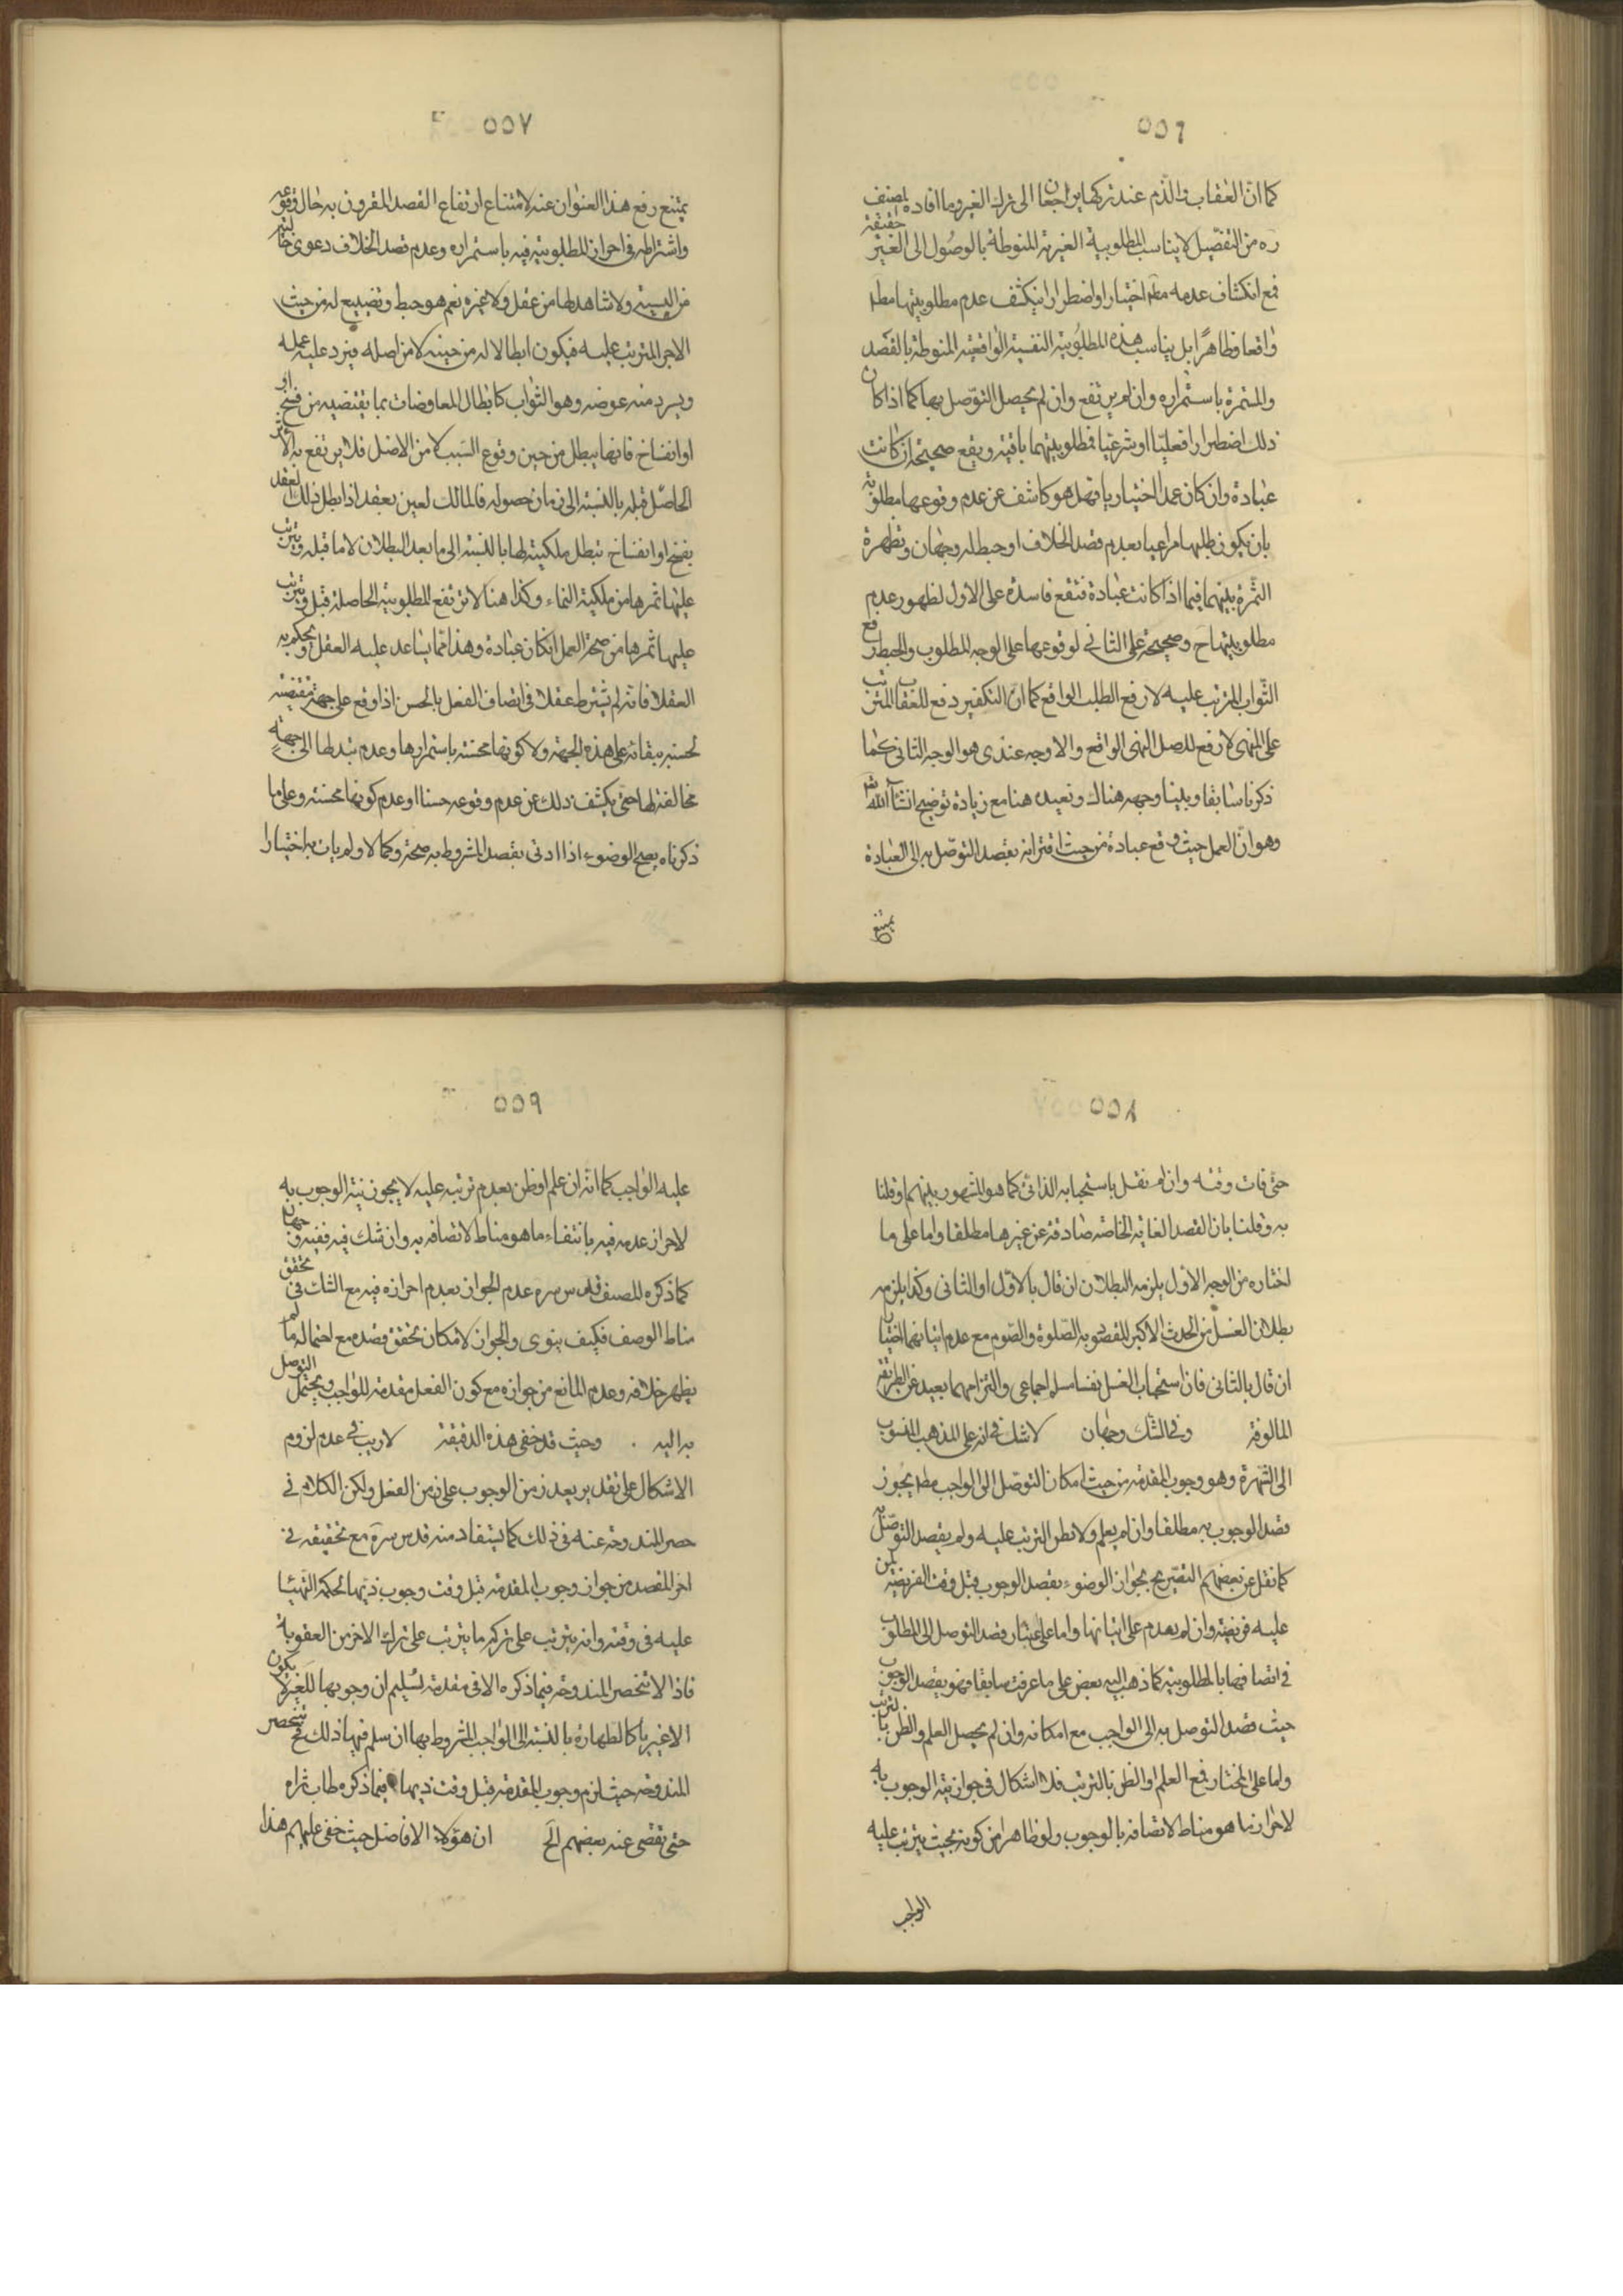 ٥٥٦
كما ان العقاب والذم عند تركها يراجعان الى ترك الغير وما افاده المصنف
ره من التفصيل لا يناسب المطلوبية الغيرية المنوطة بالوصول الى الغير حقيقة
فمع انكشاف عدمه مطم اختيارا واضطرارا ينكشف عدم مطلوبيتها مطم
واقعا وظاهرًا بل يناسب هذه المطلوبية النفسية الواقعية المنوطة بالقصد
والمشمرة باستمراره وان لم يرتفع وان لم يحصل التوصل بها كما اذا كان
ذلك اضطرارا فعليّا او شرعيا فمطلوبيتهما باقية ويقع صحيحة ان كانت
عبادة وان كان عمدا اختياريا فهل هو كاشف عن عدم وقوعها مطلوبة
بان يكون طلبها مراعيا بعدم قصد الخلاف او حبط له وجهان وتظهرة
الثمرة بينهما فيما اذا كانت عبادة فتقع فاسدة على الاول لظهور عدم
مطلوبيتها ح وصحيحة على الثاني لوقوعها على الوجه المطلوب والحبط رفع
الثواب المترتب عليه لا رفع الطلب الواقع كما ان التكفير دفع للعقاب المترتب
على المنهى لا رفع لاصل النهى الواقع والاوجه عندى هو الوجه الثانى كما
ذكرنا سابقا وبينا وجهه هناك ونعيده هنا مع زيادة توضيح انشاء الله
وهو ان العمل حيث وقع عبادة من حيث اقترانه بقصد التوصل به الى العبادة
يمتنع
٥٥٧
يمتنع رفع هذا العنوان عنه لامتناع ارتفاع القصد المقرون به حال وقوعه
واشتراطه فى احراز المطلوبية فيه باستمراره وعدم قصد الخلاف دعوى خالية
من البينة ولا شاهد لها من عقل ولا غيره نعم هو حبط وتضييع له من حيث
الاجر المترتب عليه فيكون ابطالا له من حينه لا من اصله فيرد عليه عمله
ويسرد منه عوضه وهو الثواب كابطال المعاوضات بما يقتضيه من فسخ او
او انفساخ فانها يبطل من حين وقوع السبب لا من الاصل فلا يرتفع به الاثر
الحاصل قبله بالنسبة الى زمان حصوله فالمالك لعين بعقد اذا بطل ذلك العقد
بفسخ او انفساخ تبطل ملكيته لها بالنسبة الى ما بعد البطلان لا ما قبله ويترتب
عليها ثمرها من ملكية النماء وكذا هنا لا ترتفع المطلوبية الحاصلة قبل ويترتب
عليها ثمرها من صحة العمل ان كان عبادة وهذا مما يساعد عليه العقل ويحكم به
العقلا فانه لم يشترط عقلا فى اتصاف الفعل بالحسن اذا وقع على جهة مقتضية
لحسنه بقائه على هذه الجهة ولا كونها محسنة باستمرارها وعدم تبدلها الى جهة
مخالفة لها حتى يكشف ذلك عن عدم وقوعه حسنا او عدم كونها محسنة وعلى ما
ذكرناه يصح الوضوء اذا ادى بقصد المشروط به صحة وكمالا ولم يات به اختيارا
٥٥٨
حتى فات وقته وان لم نقل باستحبابه الذاتى كما هو المشهور بينهم او قلنا
به وقلنا بان القصد الغاية الخاصة صادقة عن غيرها مطلقا واما على ما
اختاره من الوجه الاول يلزمه البطلان ان قال بالاول او الثانى وكذا يلزمه
بطلان الغسل من الحدث الاكبر المقصود به الصلوة والصوم مع عدم اتيانهما اختيارا
ان قال بالثانى فان استحباب الغسل نفسا مسلم اجماعى والتزامهما بعيد عن الطريقة
المالوفة وفى الشك وجهان لا شك فى انه على المذهب المنسوب
الى الشهرة وهو وجوب المقدمة من حيث امكان التوصل الى الواجب مطم يجوز
قصد الوجوب به مطلقا وان لم يعلم ولا يظن الترتب عليه ولم يقصد التوصل به
كما نقل عن بعضهم التصريح بجواز الوضوء بقصد الوجوب قبل وقت الفريضة لمن
عليه فريضة وان لم يعدم على اتيانها واما على اعتبار قصد التوصل الى المطلوب
فى اتصافها بالمطلوبية كما ذهب اليه بعض على ما عرفت سابقا فهو يقصد الوجوب
حيث قصد التوصل به الى الواجب مع امكانه وان لم يحصل العلم والظن بالترتب
واما على المختار فمع العلم او الظن بالترتب فلا اشكال فى جواز نية الوجوب به
لاحراز ما هو مناط لاتصافه بالوجوب ولو ظاهرا من كونه بحيث يترتب عليه
الواجب
٥٥٩
عليه الواجب كما انه ان علم او ظن بعدم ترتبه عليه لا يجوز نية الوجوب به
لاحراز عدمه فيه بانتفاء ما هو مناط لاتصافه به وان شك فيه ففيه وجهان
كما ذكره المصنف قدس سره عدم الجواز بعدم احرازه فيه مع الشك فى تحقق
مناط الوصف فكيف ينوى والجواز لامكان تحقق قصده مع احتماله ما لم
يظهر خلافه وعدم المانع من جوازه مع كون الفعل مقدمة للواجب ويحتمل التوصل
به اليه . وحيث قد خفى هذه الدقيقة لا ريب فى عدم لزوم
الاشكال على تقدير بعد زمن الوجوب على زمن الفعل ولكن الكلام فى
حصر المندوحة عنه فى ذلك كما يستفاد منه قدس سره مع تحقيقه فى
اخر المقصد من جواز وجوب المقدمة قبل وقت وجوب ذيها لحكمة التهيئا
عليه فى وقته وانه يترتب على تركه ما يترتب على ترك الاخر من العقوبة
فاذا لا تنحصر المندوحة فيما ذكره الا فى مقدمة تسليم ان وجوبها للغير لا يكون
الا غيريا كالطهارة بالنسبة الى الواجب المشروط بها ان سلم فيها ذلك فح تنحصر
المندوحة حيث لزم وجوب المقدمة قبل وقت ذيها فيما ذكره طاب ثراه
حتى تفصى عنه بعضهم الخ ان هؤلاء الافاضل حيث خفى عليهم هذا